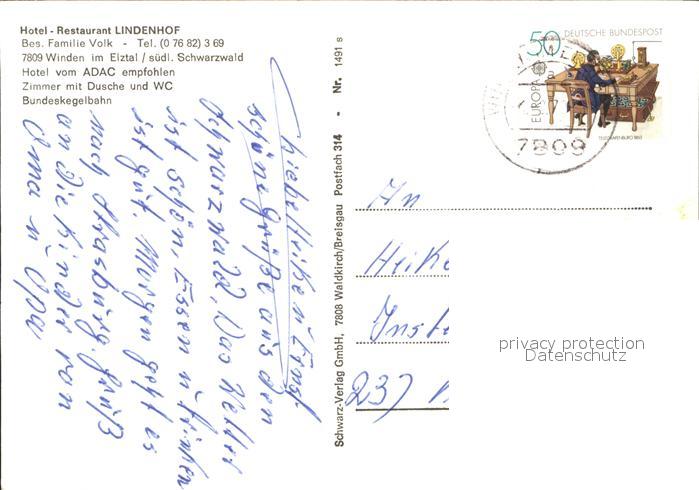 Hotel - Restaurant LINDENHOF
Bes. Familie Volk - Tel. (0 76 82) 3 69
7809 Winden im Elztal / südl. Schwarzwald
Hotel vom ADAC empfohlen
Zimmer mit Dusche und WC
Bundeskegelbahn
Liebe Heike u. Ernst
schöne Grüße aus dem
Schwarzwald. Das Wetter
ist schön, Essen u. Trinken
ist gut. Morgen geht es
nach Strasburg. Grüß
an die Kinder von
Oma u Opa
Schwarz-Verlag GmbH, 7808 Waldkirch/Breisgau Postfach 314 - Nr. 1491 s
50 DEUTSCHE BUNDESPOST
EUROPA
7809
An
Heike
237
privacy protection
Datenschutz